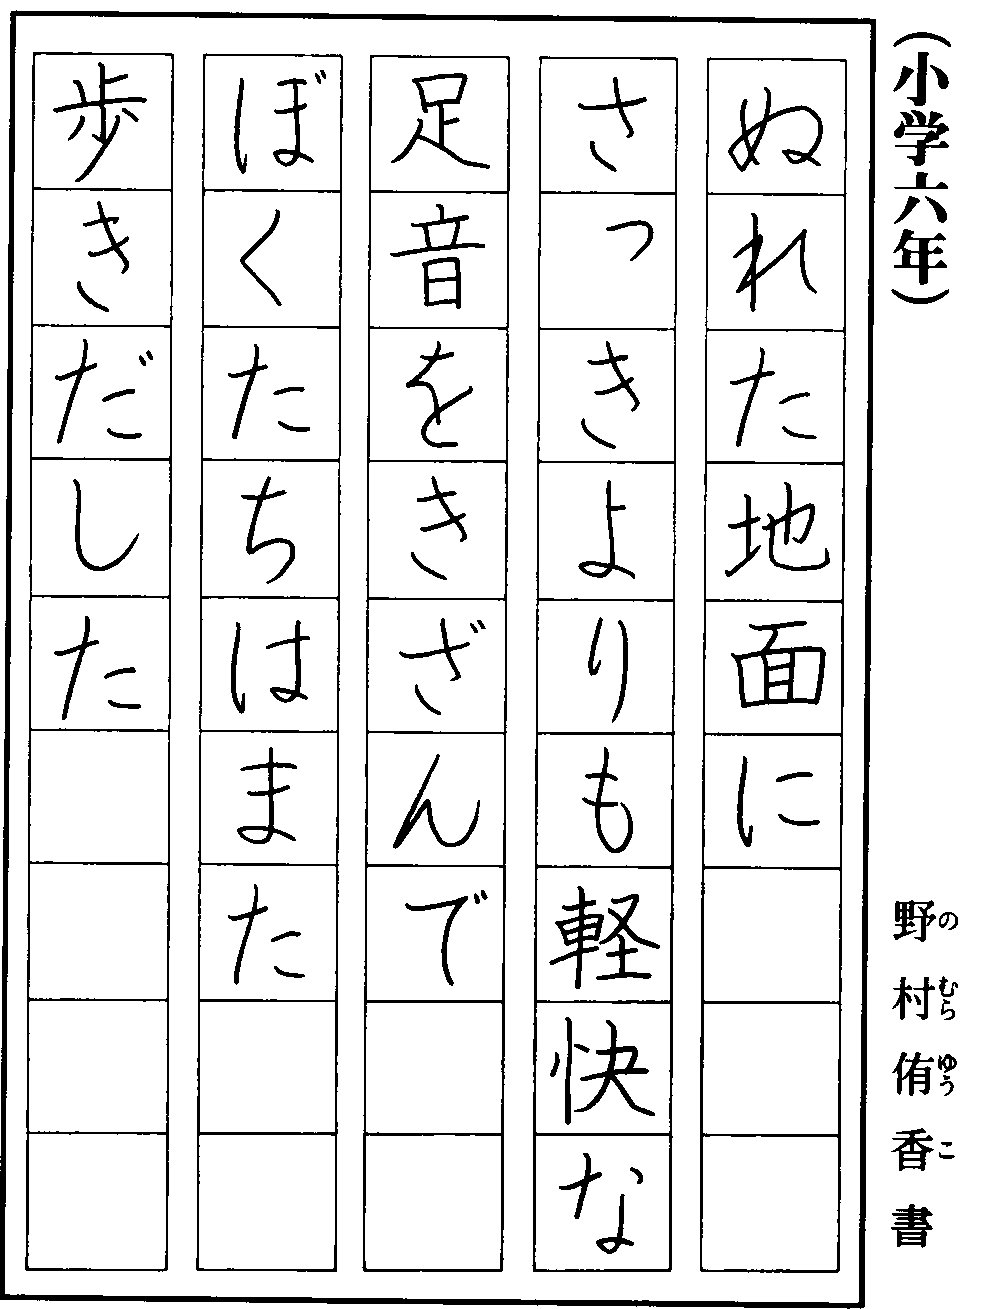 （小学六年）
野村侑香書
のむらゆうこ
ぬれた地面に
さっきよりも軽快な
足音をきざんで
ぼくたちはまた
歩きだした